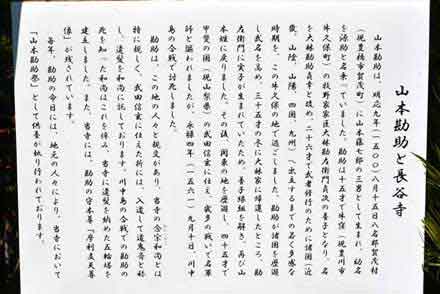 山本勘助と長谷寺
山本勘助は、明応九年(一五〇〇)八月十五日八名郡賀茂村
(現豊橋市賀茂町)に山本藤七郎の三男として生まれ、幼名
を源助と名乗っていました。勘助は十五才で牛窪(現豊川市
牛久保町)の牧野家家臣大林勘左衛門貞次の養子となり、名
を大林勘助貞幸と改め、二十六才で武者修行のために諸国(近
畿、山陰、山陽、四国、九州)へ出立するまでの多く多感な
時期を、この牛久保の地で過ごしました。勘助が諸国を歴遊
し武名を高め、三十五才の冬に大林家に帰還したところ、勘
左衛門に実子が生まれていたため、養子縁組を解き、再び山
本姓に戻りました。その後、関東の地を歴遊し、四十五才で
甲斐の国(現山梨県)の武田信玄に仕え、数多の戦いで名軍
師と謳われましたが、永禄四年(一五六一)九月十日、川中
島の合戦で討死しました。
勘助は、この地の人々と親交があり、当寺の念宗和尚とは
特に親しく、武田信玄に仕えた折には、入道して道鬼斎と称
し、遺髪を和尚に託しております。川中島の合戦での勘助の
死を知った和尚はこれを悼み、当寺に遺髪を納めた五輪塔を
建立しました。また、当寺には、勘助の守本尊「摩利支天尊
像」が残されています。
毎年、勘助の命日には、地元の人々により、当寺において
「山本勘助祭」として供養が執り行われております。